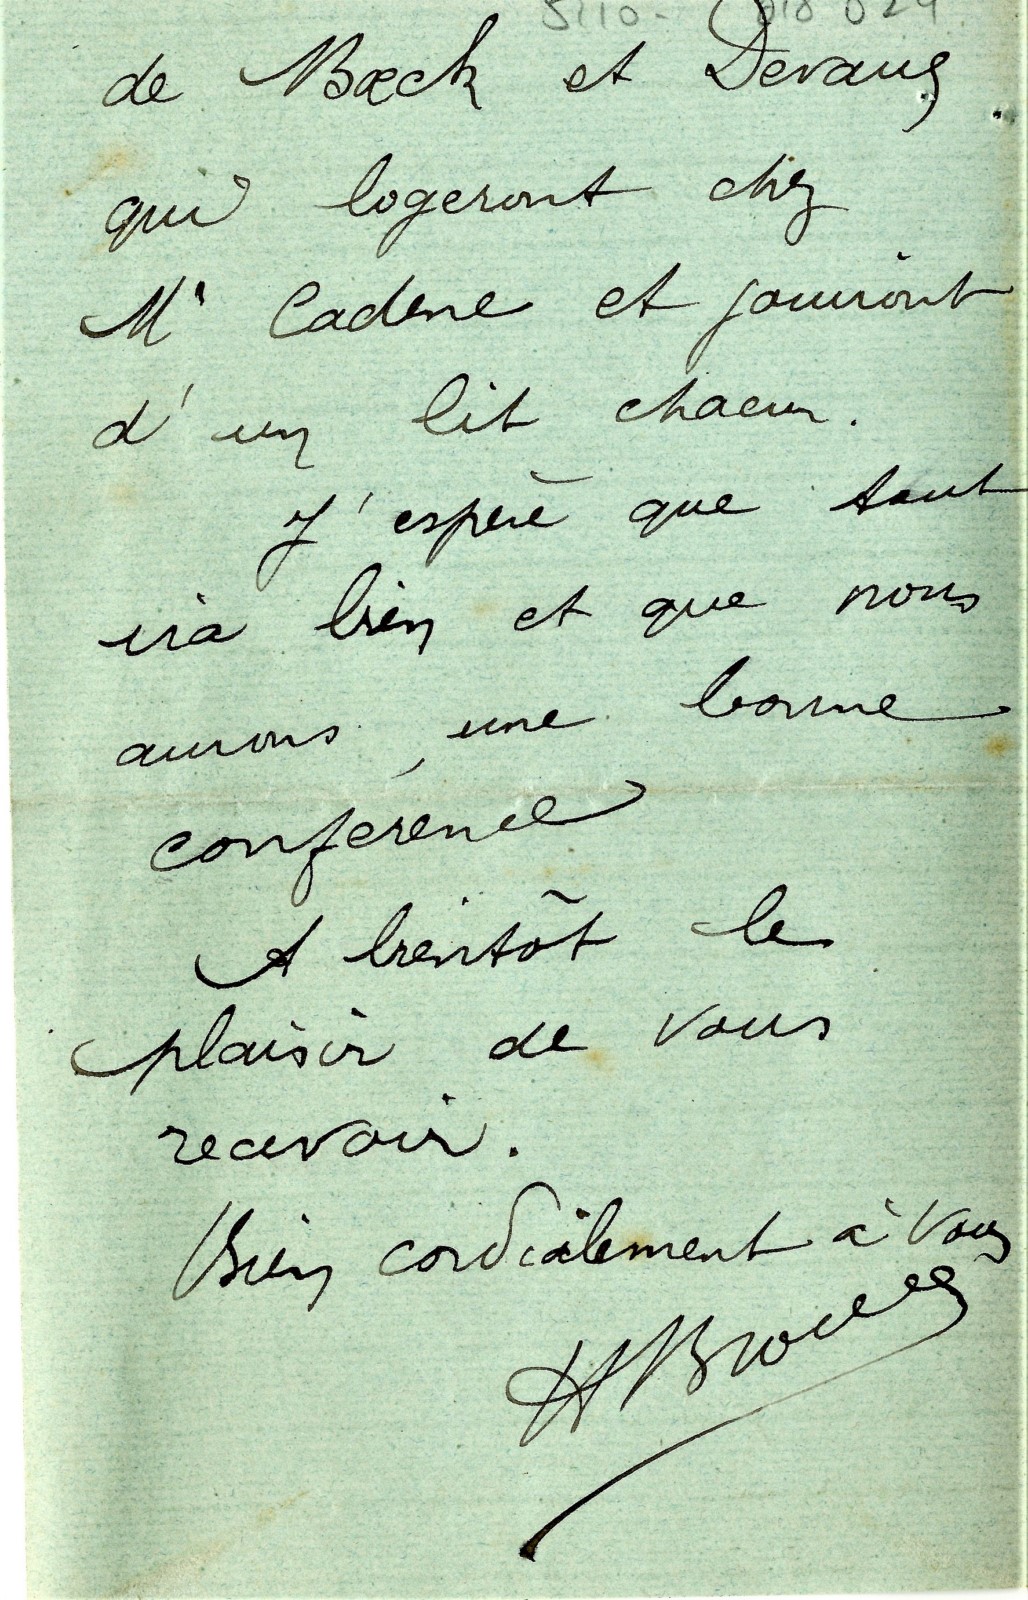 de Bœck et Devaux
qui logeront chez
Mr Cadene et jouiront
d'un lit chacun.
J'espère que tout
ira bien et que nous
aurons une bonne
conférence
A bientôt le
plaisir de vous
recevoir.
Bien cordialement à vous